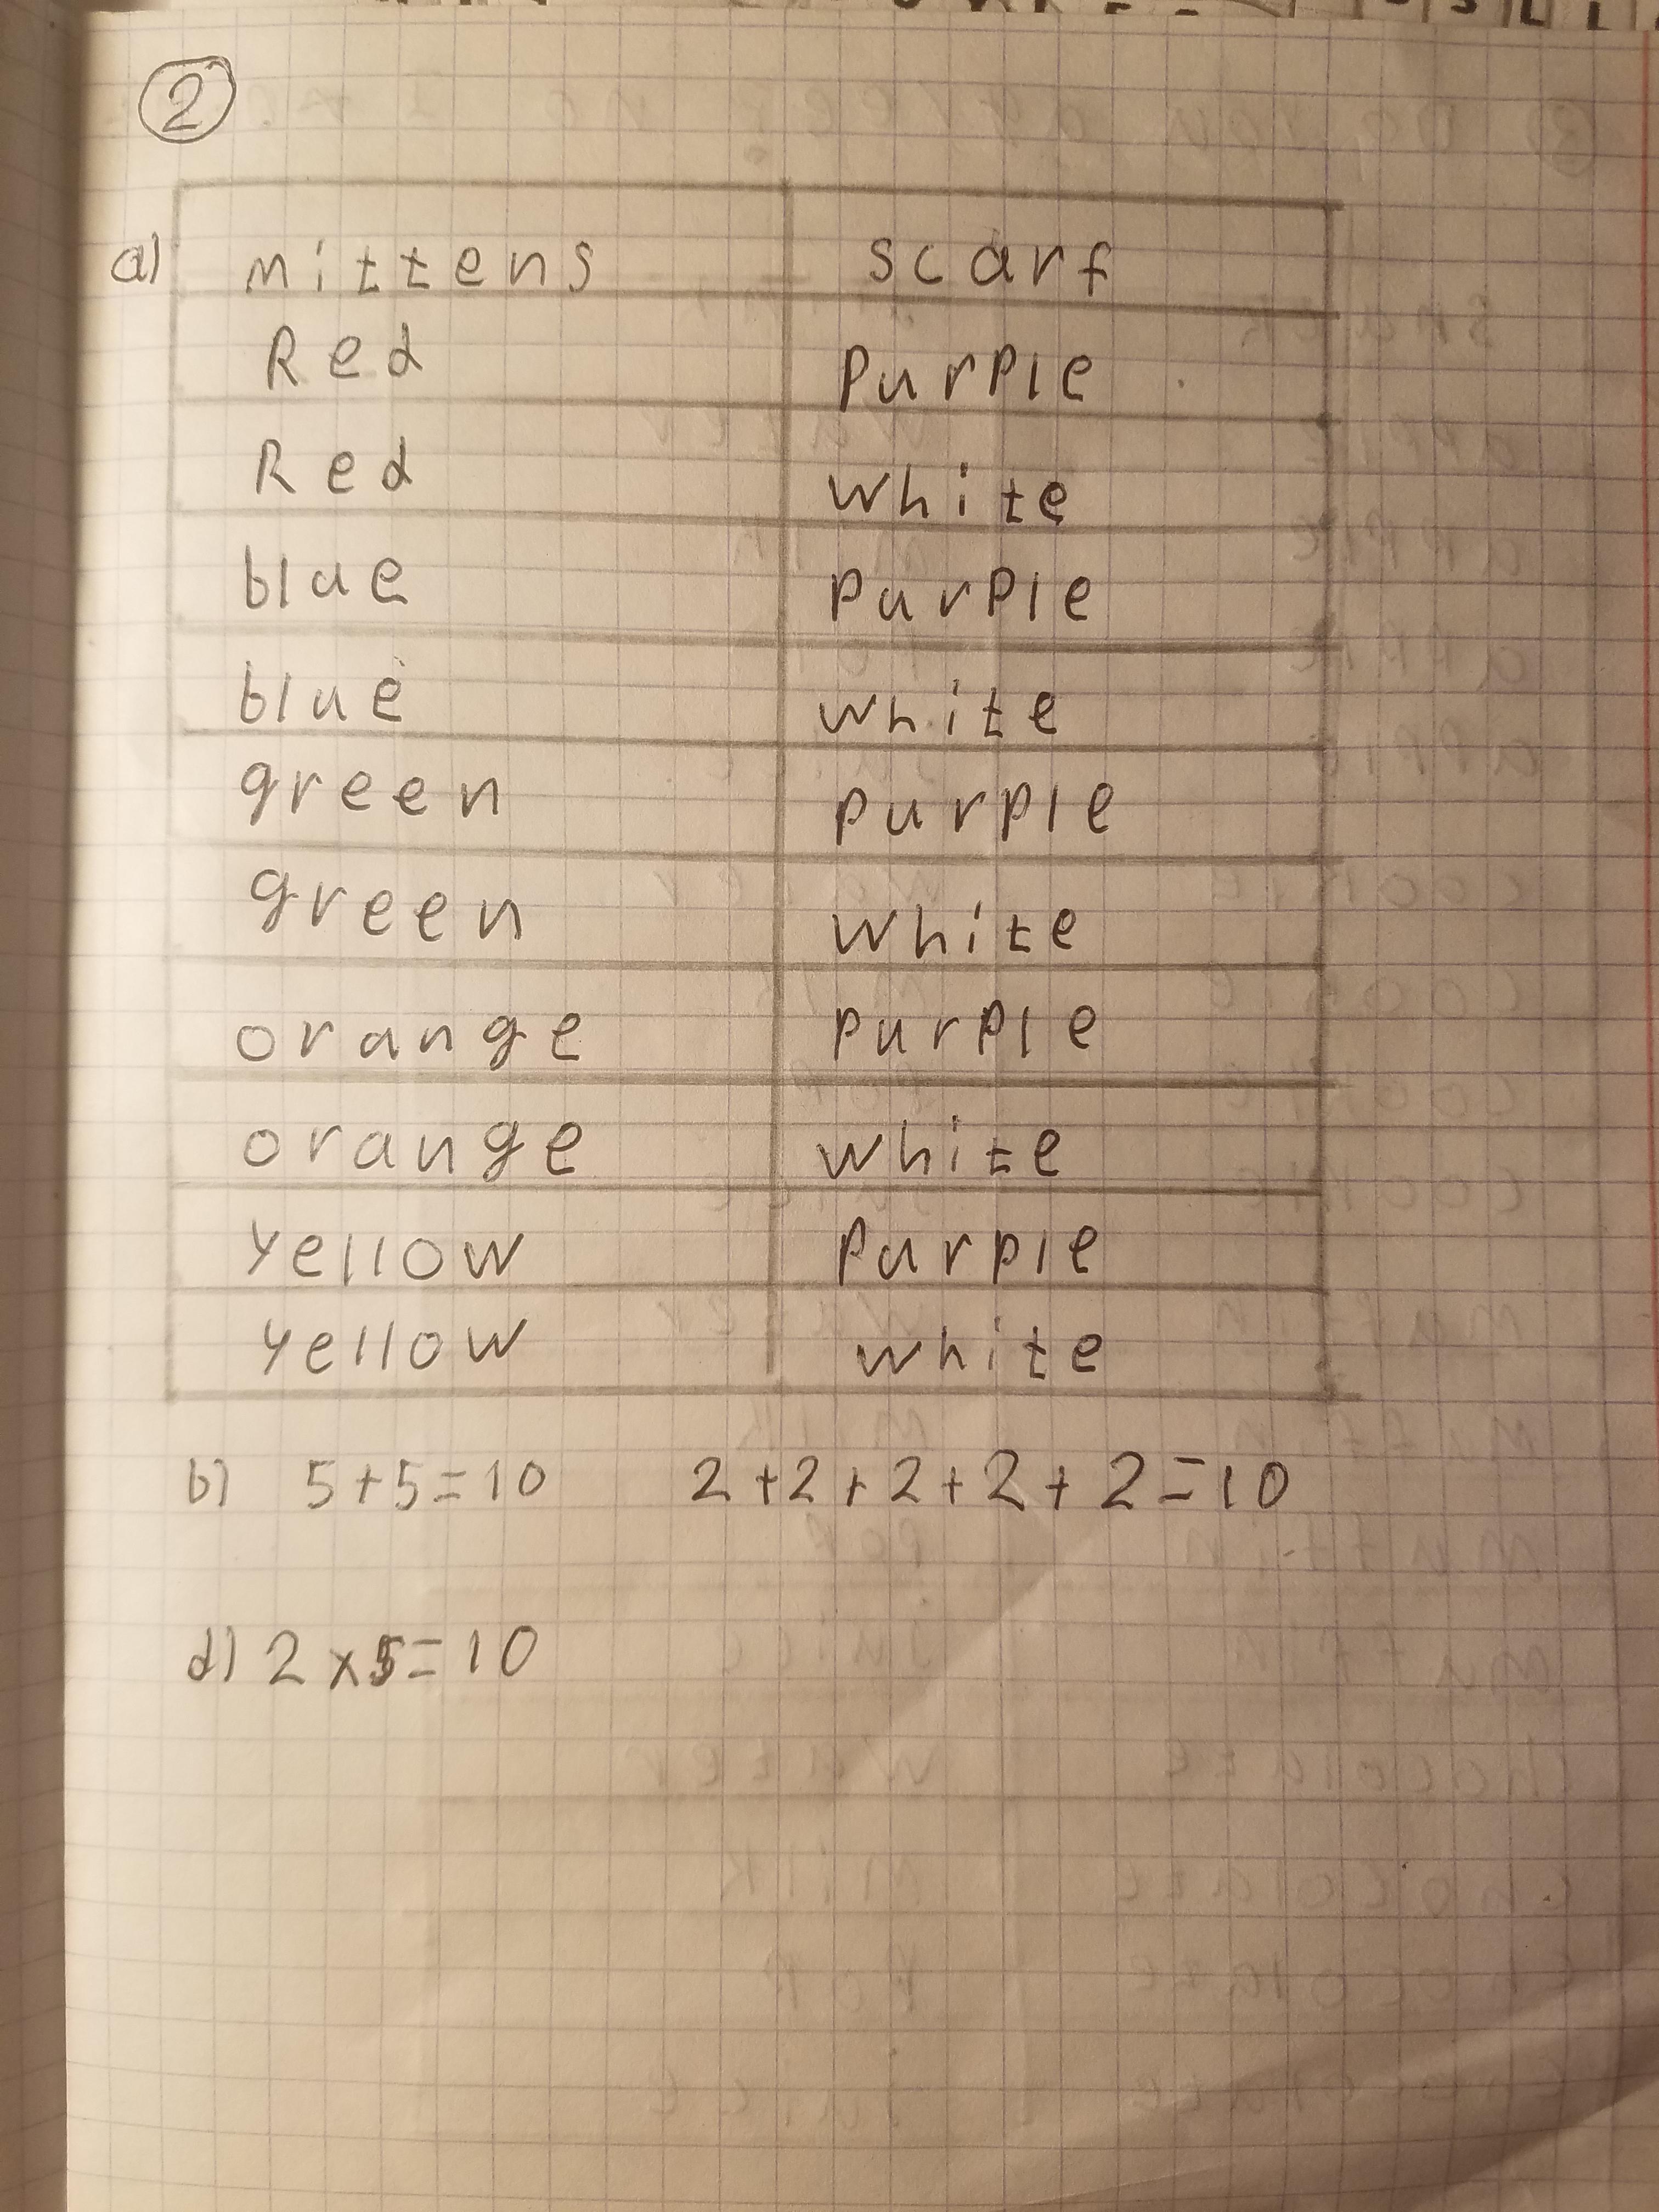 2
a) mittens scarf
Red Purple
Red white
blue purple
blue white
green purple
green white
orange purple
orange white
yellow Purple
yellow white
b) 5+5=10 2+2+2+2+2=10
d) 2x5=10